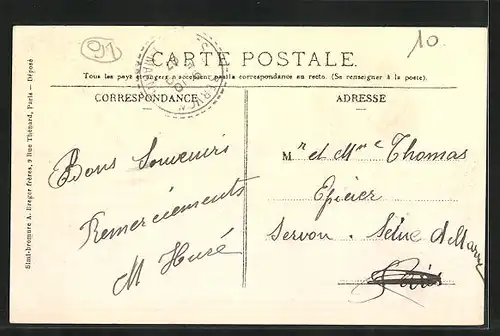 91
10
CARTE POSTALE.
Tous les pays étrangers n'acceptent pas la correspondance au recto. (Se renseigner à la poste).
CORRESPONDANCE
ADRESSE
Bons Souvenirs
Remerciements
M Huré
Mr et Mme Thomas
Epicier
Servon. Seine et Marne
Paris
Simi-bromure A. Breger frères, 9 Rue Thénard, Paris — Déposé